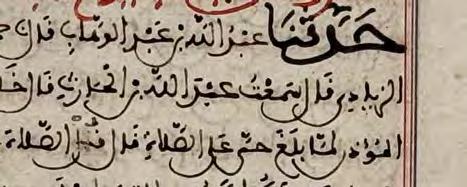 حَدَّثَنَا عَبْدُ اللَّهِ بْنُ عَبْدِ الْوَهَّابِ قَالَ
الزِّيَادِيِّ قَالَ سَمِعْتُ عَبْدَ اللَّهِ بْنَ الْحَارِثِ قَالَ
الْمُؤَذِّنُ لَمَّا بَلَغَ حَيَّ عَلَى الصَّلَاةِ قَالَ قُلِ الصَّلَاةَ